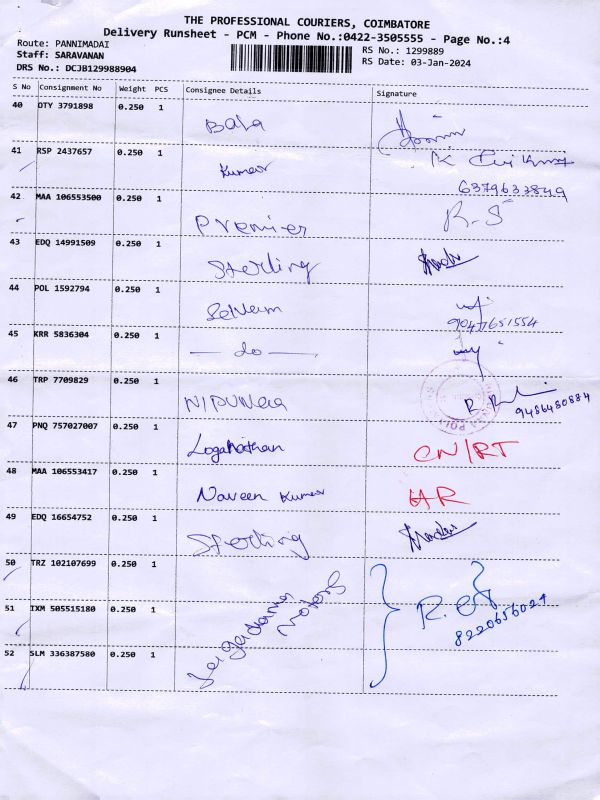 THE PROFESSIONAL COURIERS, COIMBATORE
Delivery Runsheet - PCM - Phone No.:0422-3505555 - Page No.:4
Route: PANNIMADAI
Staff: SARAVANAN
DRS No.: DCJB129988904
RS No.: 1299889
RS Date: 03-Jan-2024
S No Consignment No Weight PCS Consignee Details Signature
40 OTY 3791898 0.250 1 Bala
41 RSP 2437657 0.250 1 Kumar K
6379633849
42 MAA 106553500 0.250 1 Premier R.S
43 EDQ 14991509 0.250 1 Sterling
44 POL 1592794 0.250 1 Selvam
9047651554
45 KRR 5836304 0.250 1 — do —
46 TRP 7709829 0.250 1 R.
9486480884
47 PNQ 757027007 0.250 1 Loganathan CN/RT
48 MAA 106553417 0.250 1 Naveen Kumar HR
49 EDQ 16654752 0.250 1 Sterling
50 TRZ 102107699 0.250 1
51 IXM 505515180 0.250 1 Motors
8220656024
52 SLM 336387580 0.250 1